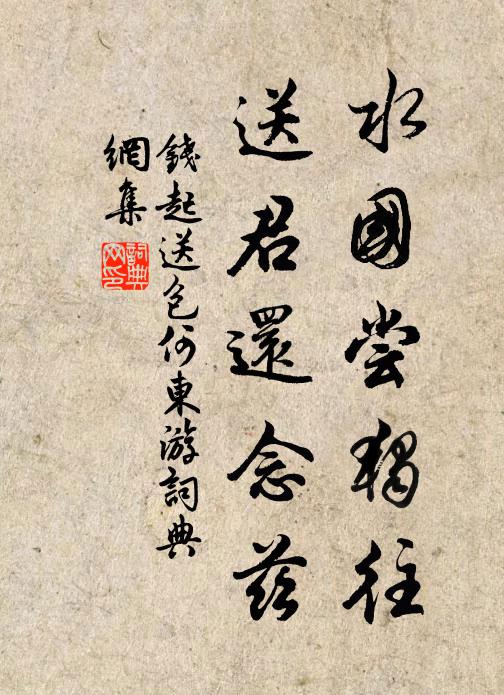 水國嘗獨往
送君還念茲
錢起送包何東游詞典
網集
詞典網印